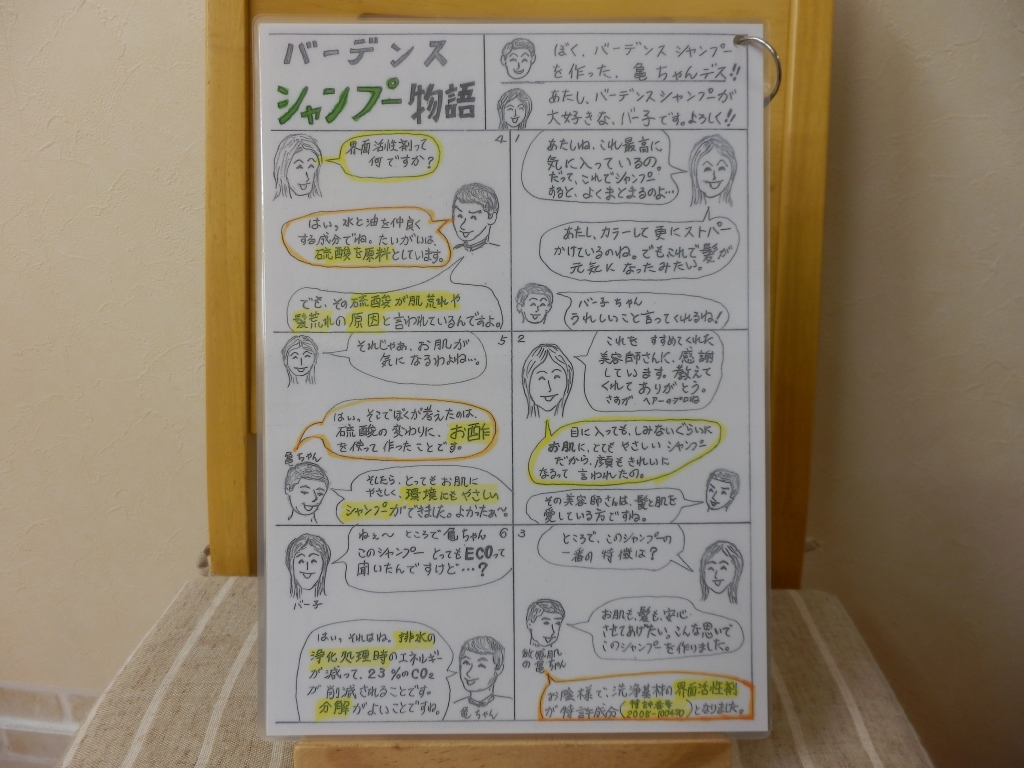 バーデンス
シャンプー物語
ぼく、バーデンス シャンプー
を作った、亀ちゃんデス!!
あたし、バーデンスシャンプーが
大好きな、バー子です。よろしく!!
1
あたしね、これ最高に
気に入っているの。
だって、これでシャンプー
すると、よくまとまるのよ…
あたし、カラーして更にストパー
かけているのね。でもこれで髪が
元気になったみたい。
バー子ちゃん
うれしいこと言ってくれるね!
2
これを すすめてくれた
美容師さんに、感謝
しています。教えて
くれて ありがとう。
さすが ヘアーのプロね
目に入っても、しみないぐらいに
お肌に、とても やさしい シャンプー
だから、顔もきれいに
なるって 言われたの。
その美容師さんは、髪と肌を
愛している方ですね。
3
ところで、このシャンプーの
一番の特徴は?
お肌も、髪も、安心
させてあげたい。こんな思いで
このシャンプーを作りました。
敏感肌
の亀ちゃん
お陰様で、洗浄基材の界面活性剤
が特許成分(特許番号
2008-100430)となりました。
4
界面活性剤って
何ですか?
はい。水と油を仲良く
する成分でね。たいがいは、
硫酸を原料としています。
でも、その硫酸が肌荒れや
髪荒れの原因と言われているんですよ。
5
それじゃあ、お肌が
気になるわよね…。
はい。そこでぼくが考えたのは、
硫酸の変わりに、お酢
を使って作ったことです。
亀ちゃん
そしたら、とってもお肌に
やさしく、環境にもやさしい
シャンプーができました。よかたぁ〜。
6
ねぇ〜 ところで亀ちゃん
このシャンプー とってもECOって
聞いたんですけど…?
バー子
はい。それはね。排水の
浄化処理時のエネルギー
が減って、23%のCO2
が削減されることです。
分解がよいことですね。
亀ちゃん